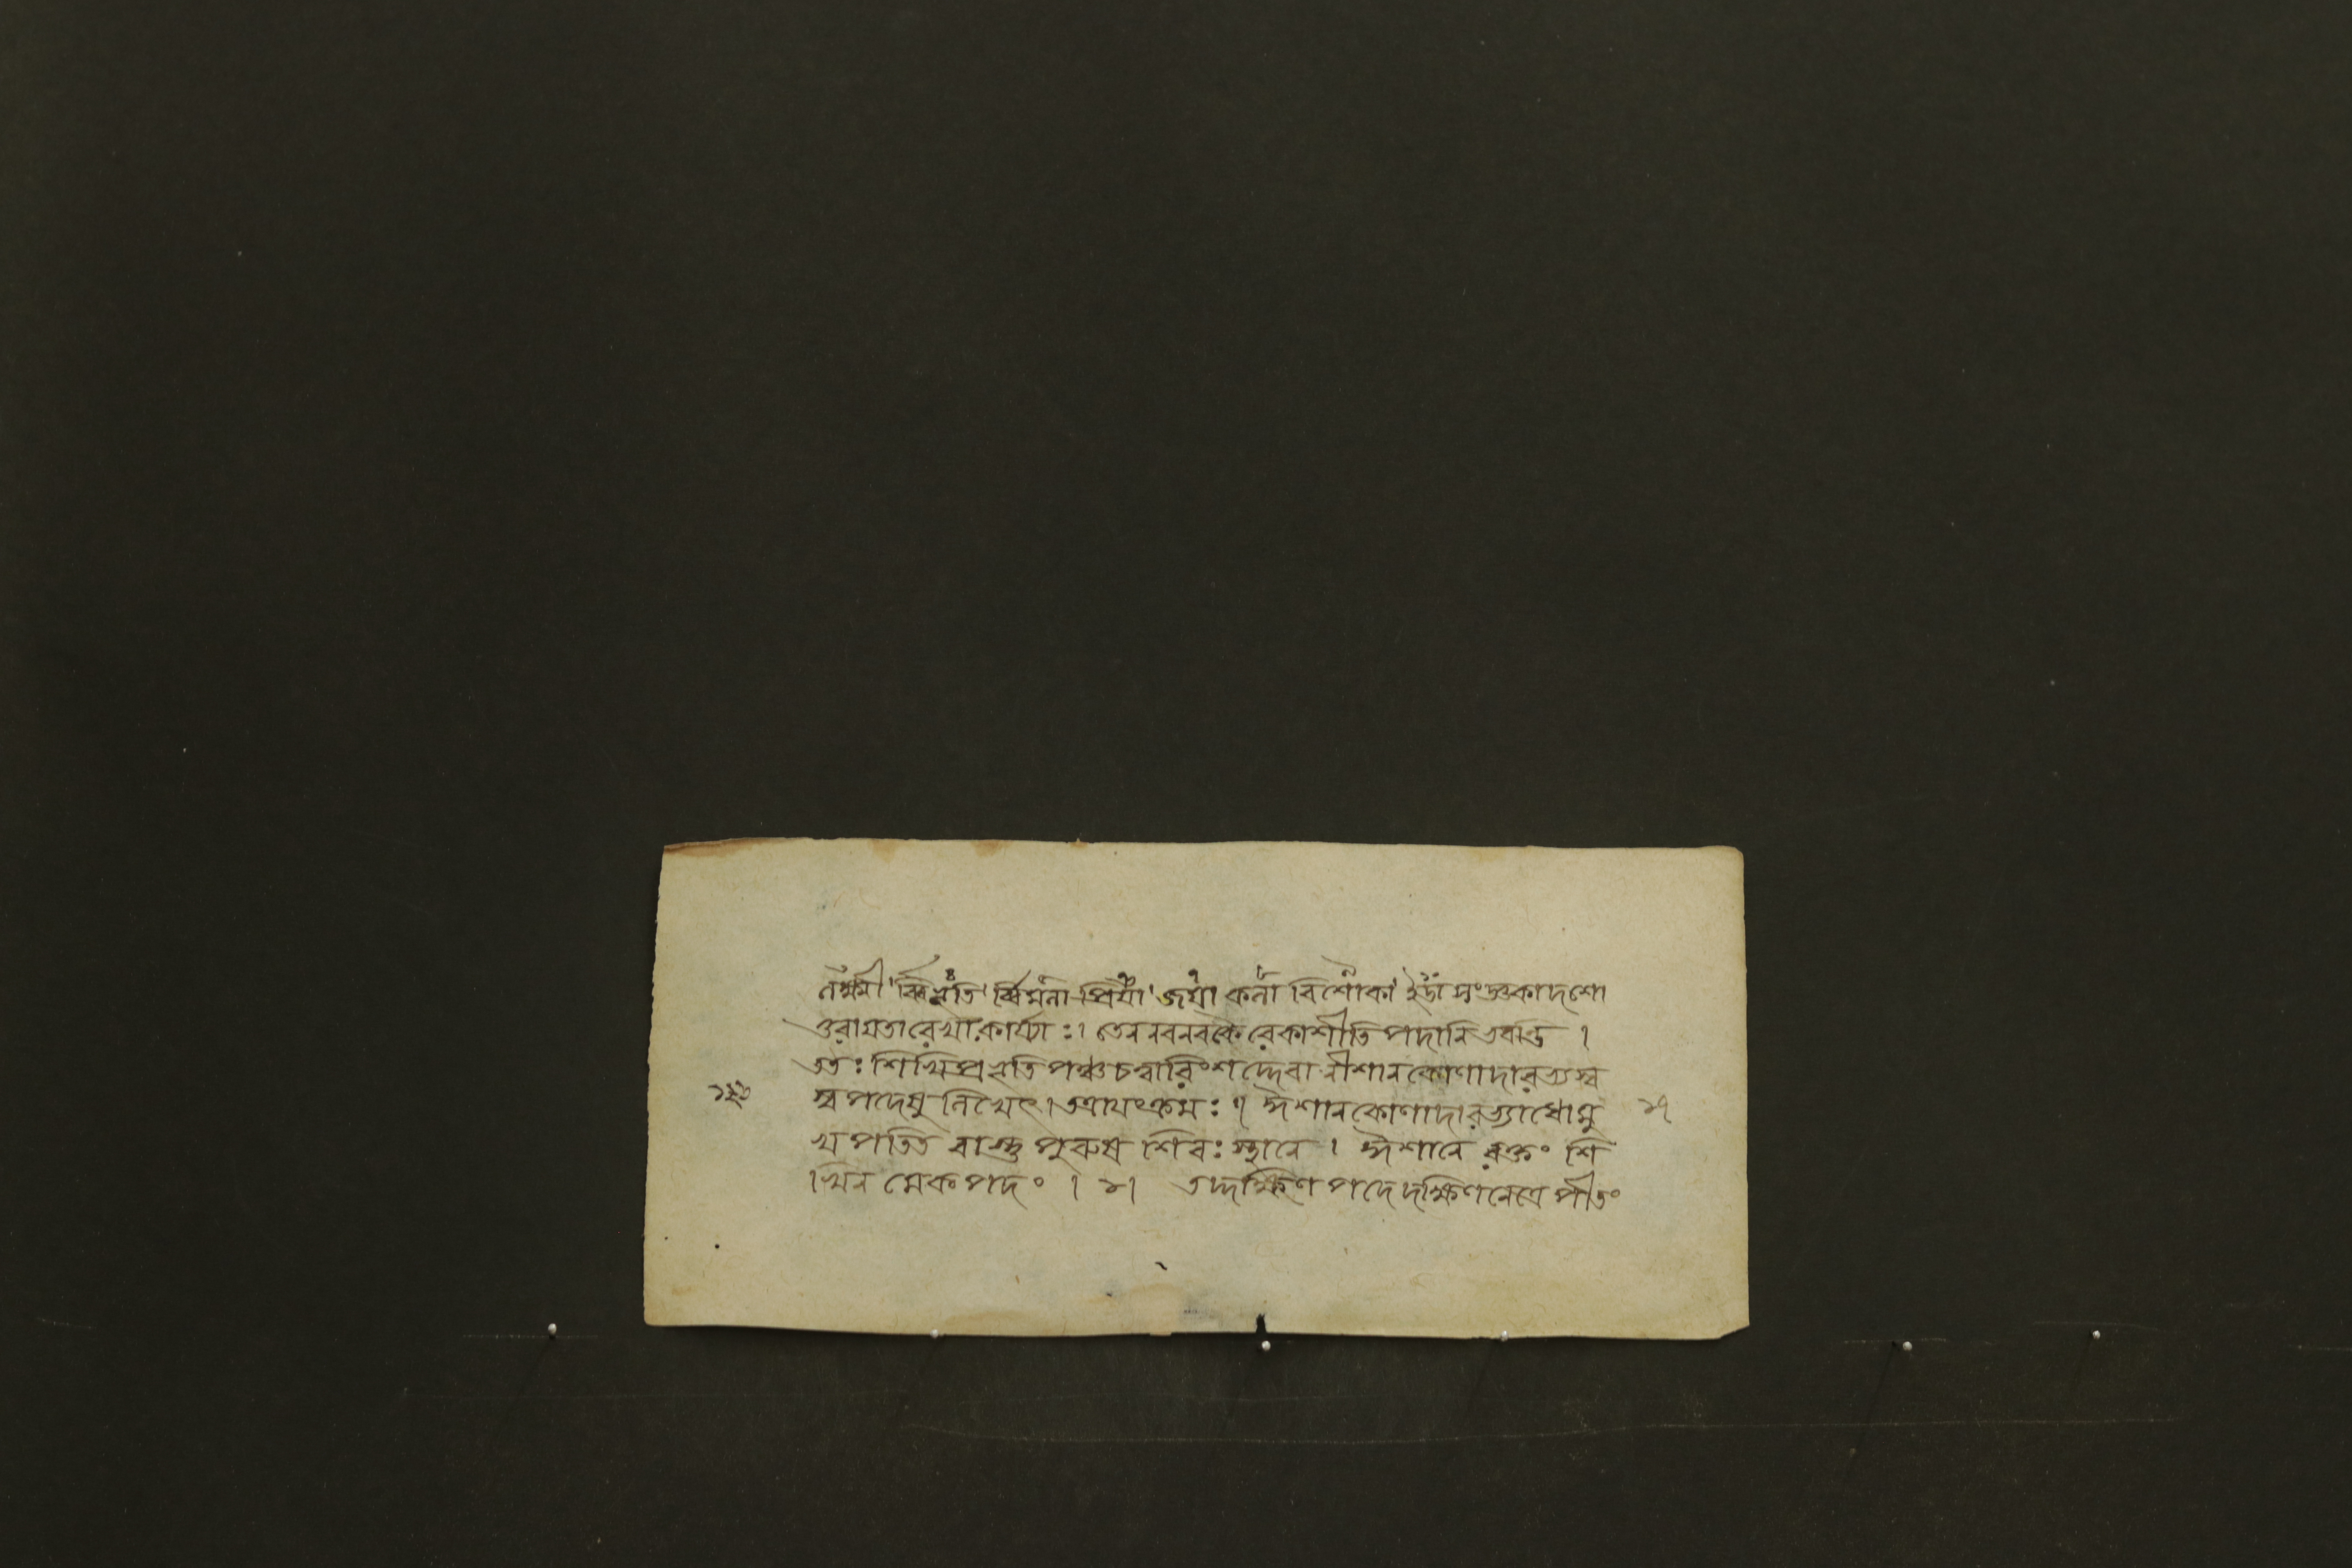 লক্ষ্মী বিভূতি র্বিমলা প্রিয়া জয়া কলা বিশোকা ইডা সংজ্ঞকাদশো
ত্তরাগ্রতা রেখা কার্য্যাঃ। তেন নবনবকৈ রেকাশীতি পদানি ভবন্তি।
ততঃ শিখিপ্রভৃতি পঞ্চচত্বারিংশদ্দেবানীশানকোণাদারভ্য স্ব
স্ব পদেষু লিখেৎ। তত্রায়ং ক্রমঃ॥ ঈশানকোণাদারভ্যাধোমু
খ পতিত বাস্তু পুরুষ শিরঃ স্থানে। ঈশানে রক্তং শি
খিন মেকপদং। ১। তদ্দক্ষিণ পদে দক্ষিণনেত্রে পীতং